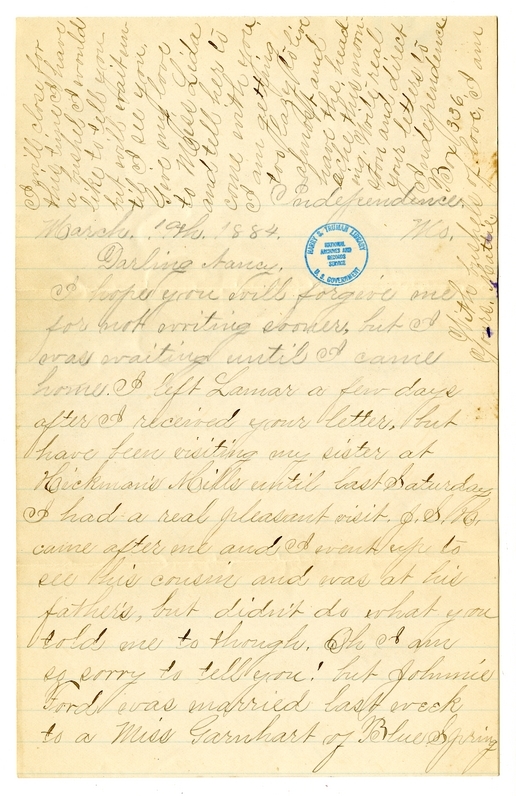 Independence,
March. 19th. 1884. Mo.
Darling Nancy,
I hope you will forgive me
for not writing sooner, but I
was waiting until I came
home. I left Lamar a few days
after I received your letter, but
have been visiting my sister at
Hickman's Mills until last Saturday
I had a real pleasant visit. J. S. W.
came after me and I went up to
see his cousin and was at his
father's, but didn't do what you
told me to though. Oh I am
so sorry to tell you! but Johnnie
Ford was married last week
to a Miss Garnhart of Blue Spring
I will close for
this time. I have
a bushel I would
like to tell you
but will wait un-
til I see you.
Give my love
to Miss Lida
and tell her to
come with you.
I am getting
too lazy to live
almost and
have the head
ache this morn-
ing. Write real
soon and direct
your letters to
Independence
Box 336.
With bushels of love, I am
Yours,
HARRY S. TRUMAN LIBRARY
NATIONAL
ARCHIVES AND
RECORDS
SERVICE
U. S. GOVERNMENT